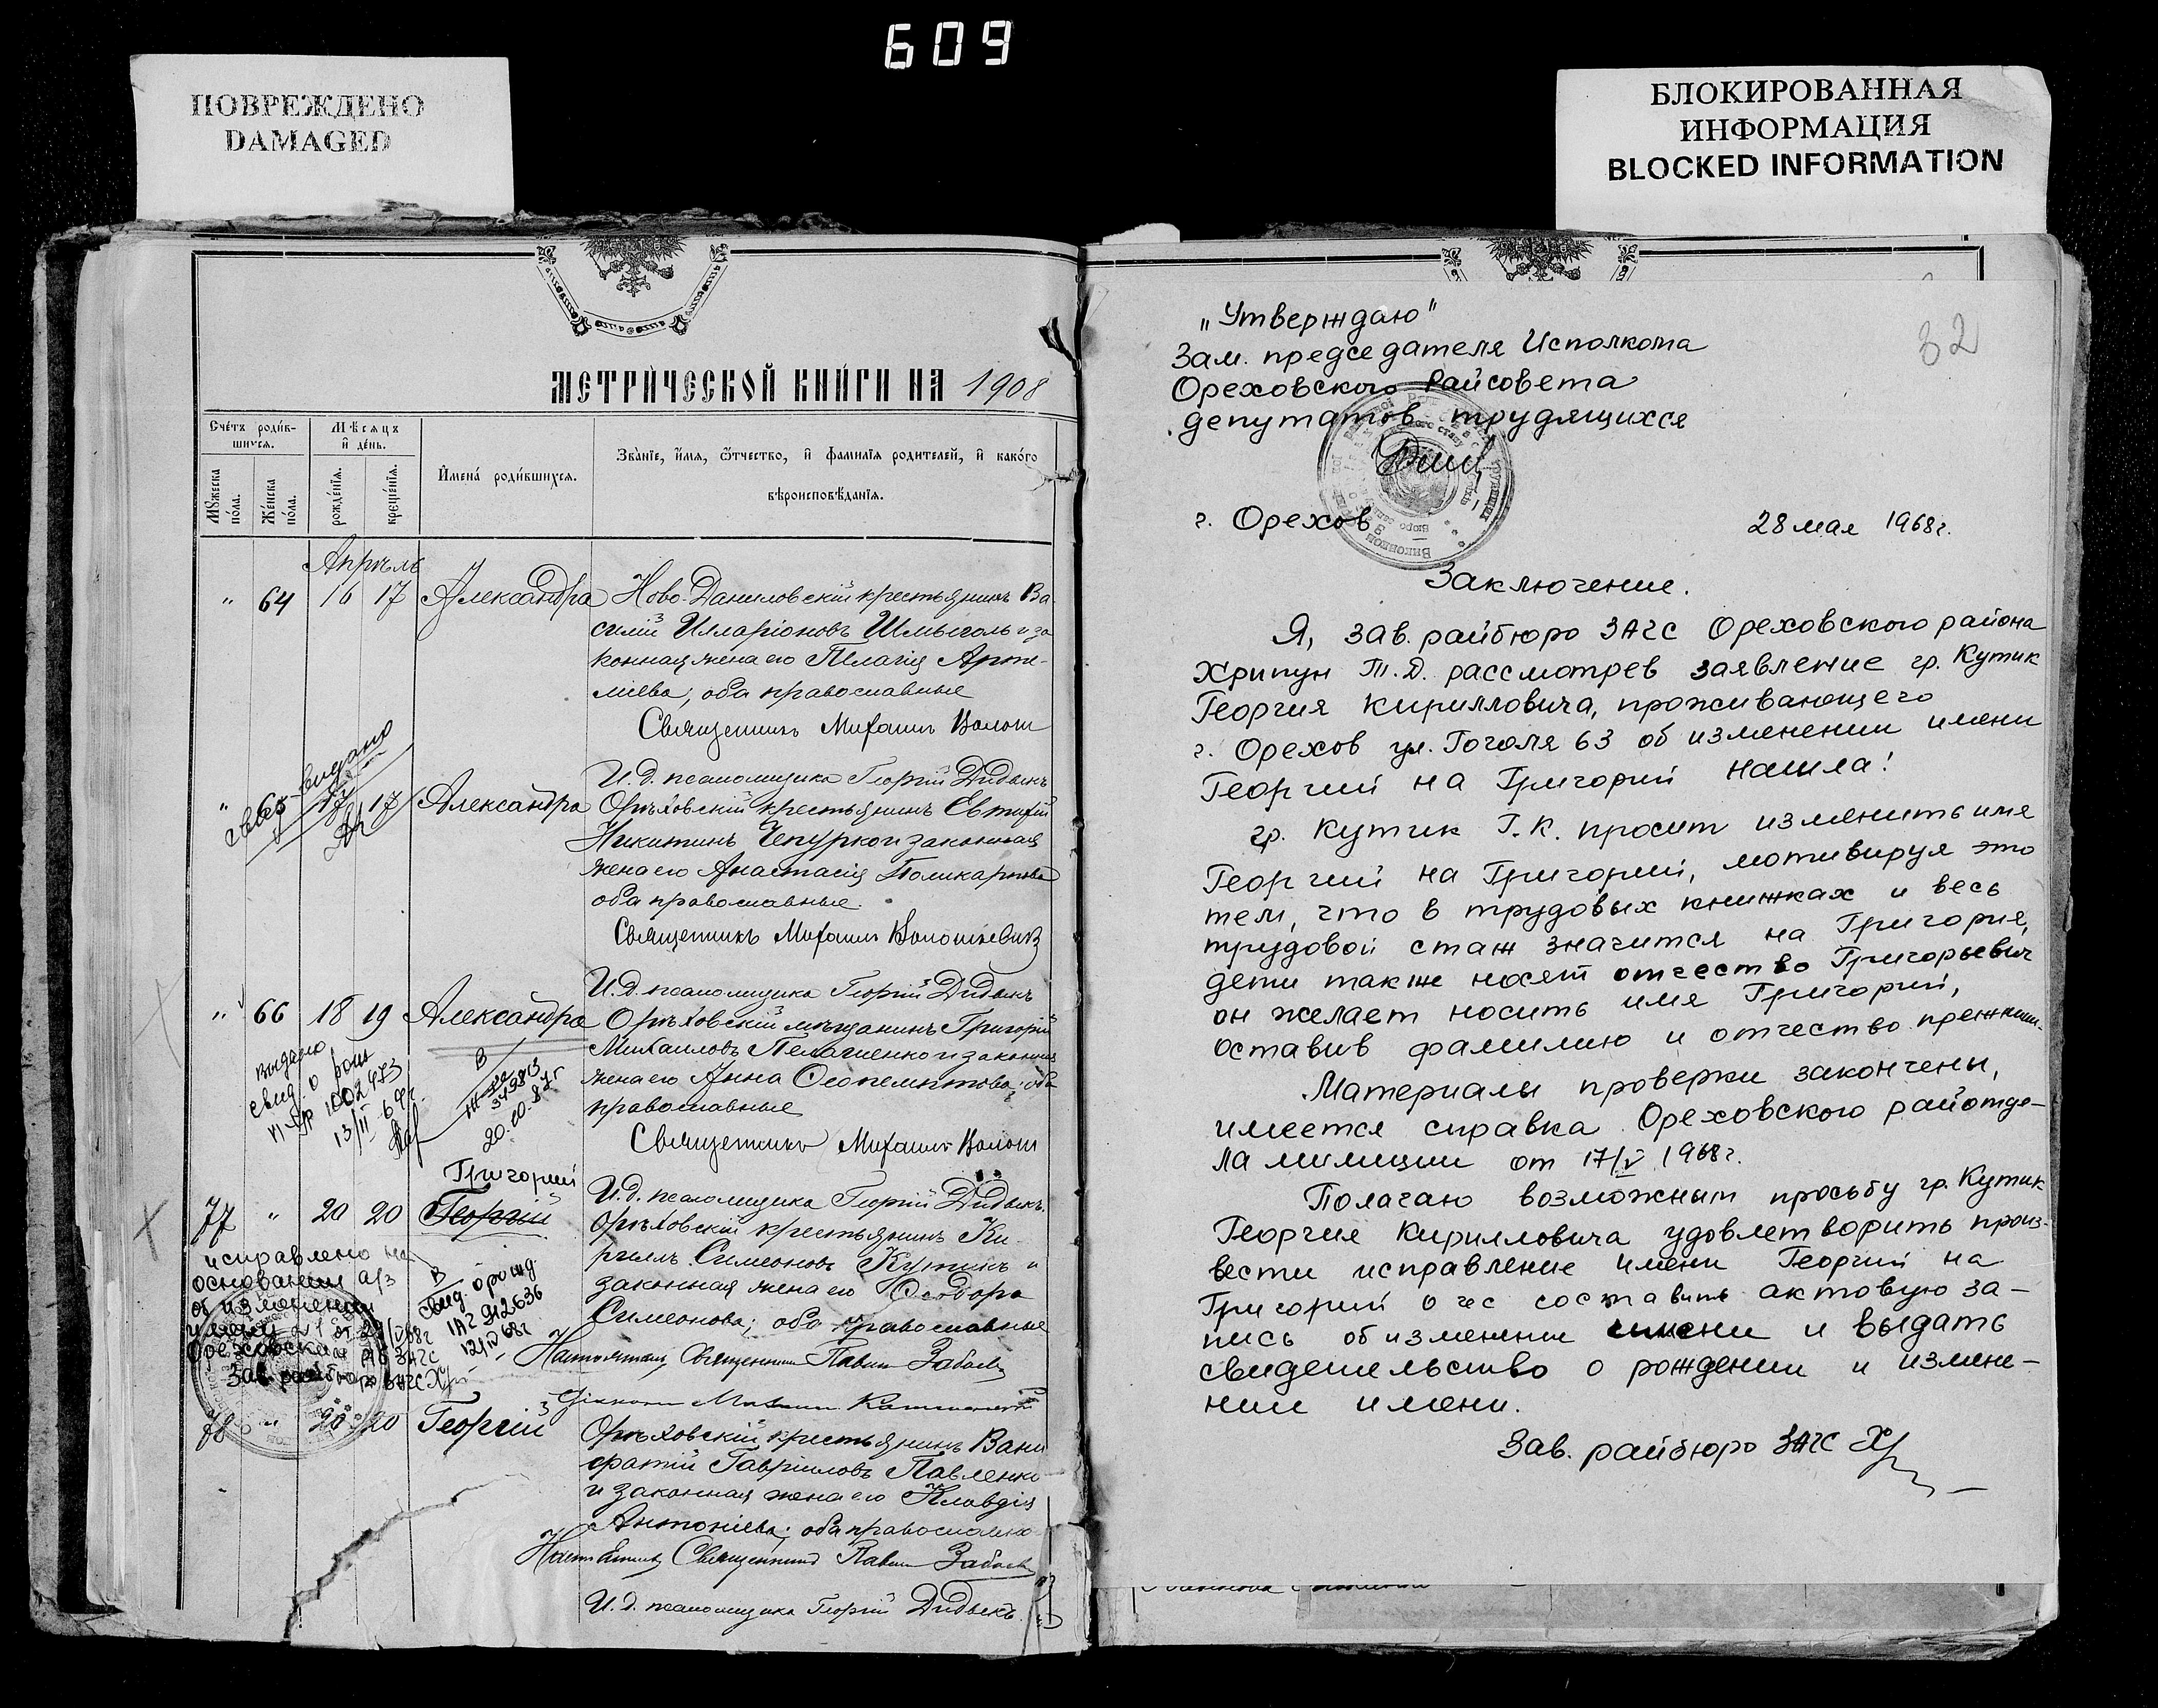 609
ПОВРЕЖДЕНО
DAMAGED
БЛОКИРОВАННАЯ
ИНФОРМАЦИЯ
BLOCKED INFORMATION
МЕТРИЧЕСКОЙ КНИГИ НА 1908
Счетъ родив-
шихся.
Мѣсяцъ
и день.
Мужеска
пола.
Женска
пола.
рожденія.
крещенія.
Имена родившихся.
Званіе, имя, отчество, и фамилія родителей, и какого
вѣроисповѣданія.
Апрѣль
" 64 16 17 Александра Ново-Даниловскій крестьянинъ Ва
силій Илларіоновъ Шмыголь и за
конная жена его Пелагія Арте-
міева; оба православные
Священникъ Михаилъ Волош
И. д. псаломщика Георгій Дидыкъ
" 65 17 17 Александра Орѣховскій крестьянинъ Евтихій
выдано
Никитинъ Чепурко и законная
жена его Анастасія Поликарпова
оба православные.
Священникъ Михаилъ Волошкевич
И. д. псаломщика Георгій Дидыкъ
" 66 18 19 Александра Орѣховскій мѣщанинъ Григорій
Михаиловъ Пелагиенко и законная
жена его Анна ; оба
православные
Священникъ Михаилъ Волош
выдано
свид. о рож
1002473
13/II 69г.
349813
20.10.87г
И. д. псаломщика Георгій Дидыкъ
Григорий
77 " 20 20 Георгій Орѣховскій крестьянинъ Ки-
риллъ Симеоновъ Кутикъ и
законная жена его Ѳеодора
Симеонова; оба православные
Настоятель Священникъ Павелъ
исправлено на
основании а/з
об изменении
имени
Зав. райбюро ЗАГС
в
свид. о рожд.
912636
68г
78 " 20 20 Георгій Орѣховскій крестьянинъ
Гавріиловъ Павленко
и законная жена его Клавдія
Антоніева; оба православно
Священникъ Павелъ
И. д. псаломщика Георгій Дидыкъ
32
„Утверждаю"
Зам. председателя Исполкома
Ореховского Райсовета
депутатов трудящихся
г. Орехов 28 мая 1968г.
Заключение.
Я, зав. райбюро ЗАГС Ореховского района
Хрипун Т.Д. рассмотрев заявление гр. Кутик
Георгия Кирилловича, проживающего
г. Орехов ул. Гоголя 63 об изменении имени
Георгий на Григорий нашла!
гр. Кутик Г.К. просит изменить имя
Георгий на Григорий, мотивируя это
тем, что в трудовых книжках и весь
трудовой стаж значится на Григория,
дети также носят отчество Григорьевич
он желает носить имя Григорий,
оставив фамилию и отчество прежним.
Материалы проверки закончены,
имеется справка Ореховского райотде-
ла милиции от 17/V 1968г.
Полагаю возможным просьбу гр. Кутик
Георгия Кирилловича удовлетворить произ-
вести исправление имени Георгий на
Григорий о чес составить актовую за-
пись об изменении имени и выдать
свидетельство о рождении и измене-
нии имени.
Зав. райбюро ЗАГС